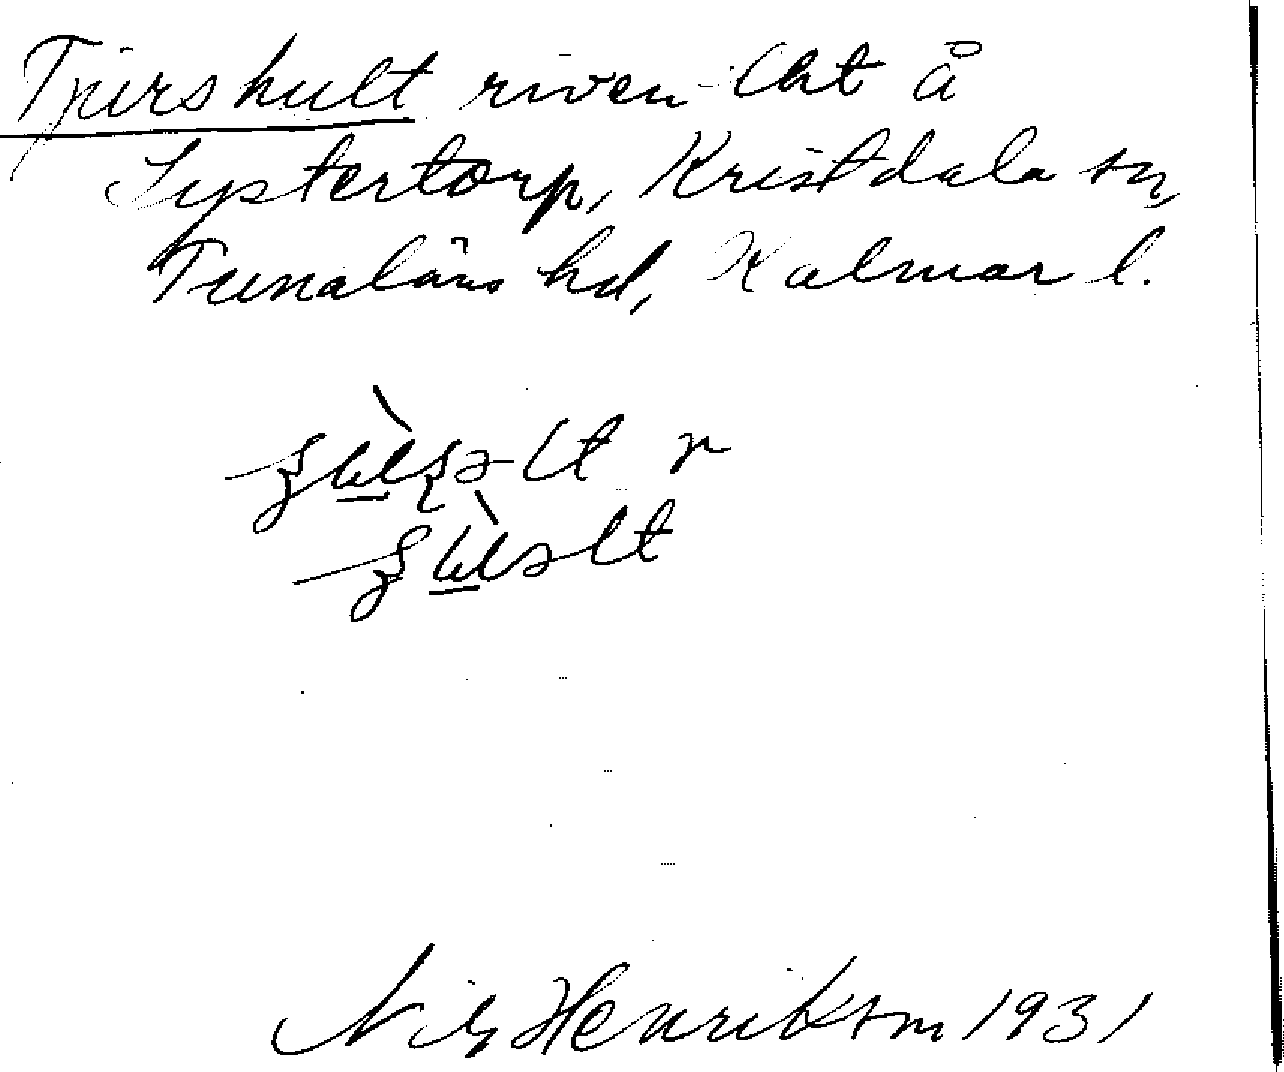 Tjurshult riven lht å
Systertorp, Kristdala sn,
Tunaläns hd, Kalmar l.
Nils Henrikson 1931